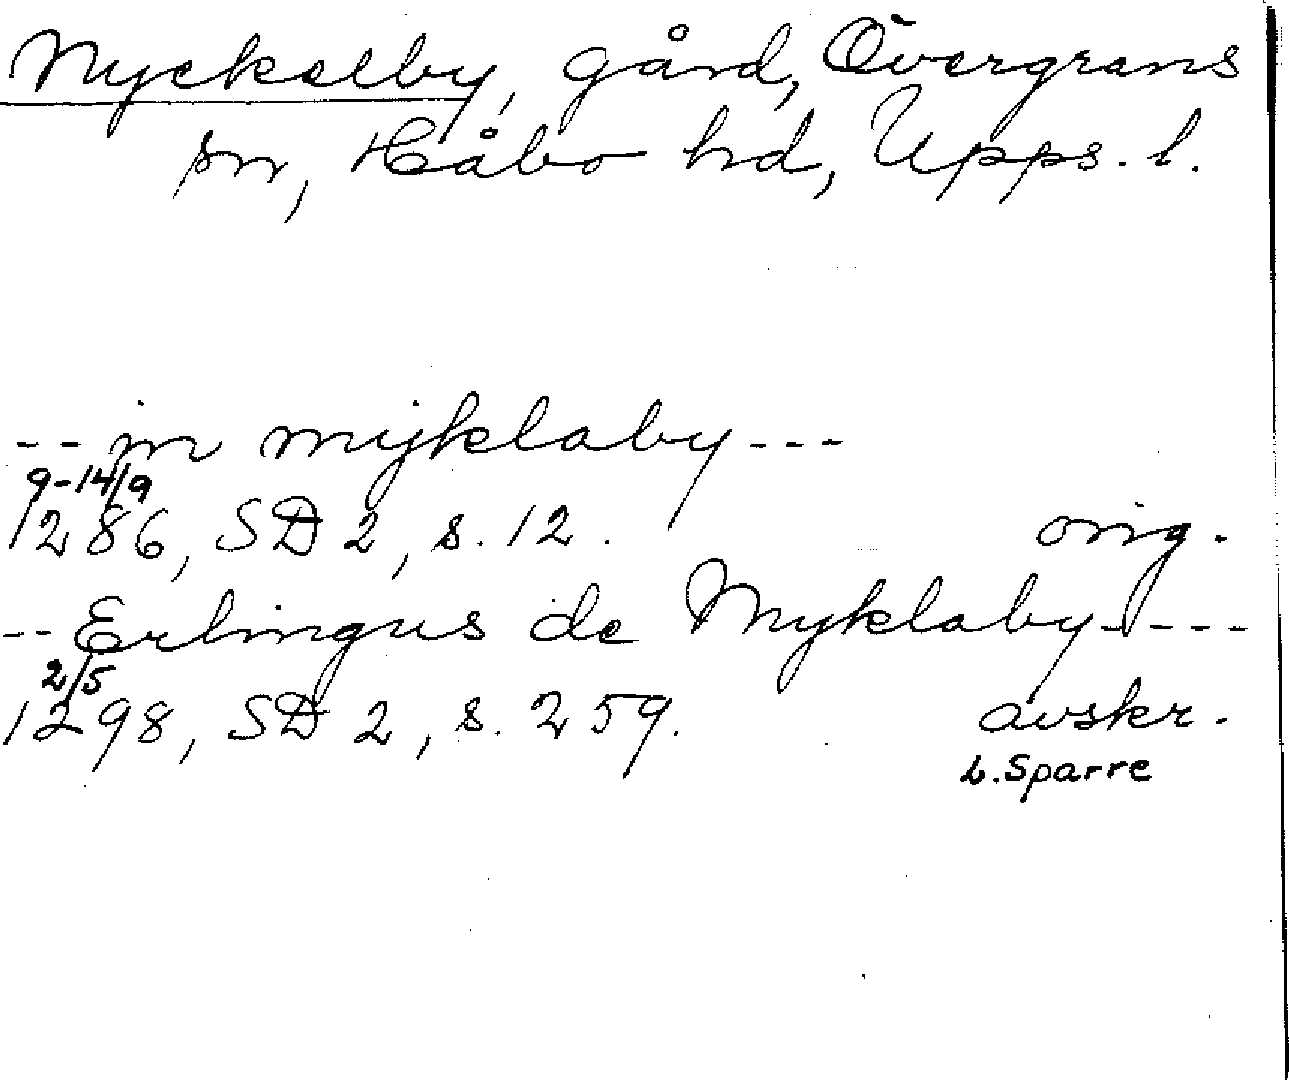 Nyckelby, gård, Övergrans
sn, Håbo hd, Upps. l.
-- in mijklaby ---
9-14/9
1286, SD 2, s. 12. orig.
-- Erlingus de Myklaby ----
2/5
1298, SD 2, s. 259. avskr.
L. Sparre